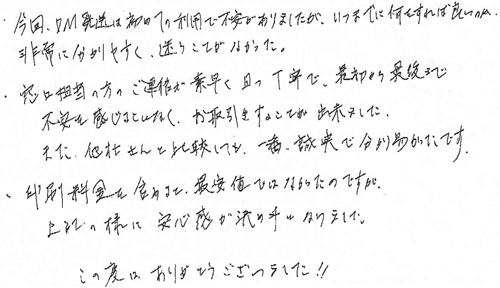 ・今回、DM発送は初めての利用で不安がありましたが、いつまでに何をすれば良いのか、
非常に分かりやすく、迷うことがなかった。
・窓口担当の方のご連絡が素早く且つ丁寧で、最初から最後まで
不安を感じることなく、お取引きすることが出来ました。
また、他社さんと比較しても、一番、誠実で分かり易かったです。
・印刷料金を含めると、最安値ではなかったのですが、
上記の様に安心感が決め手になりました。
この度はありがとうございました!!